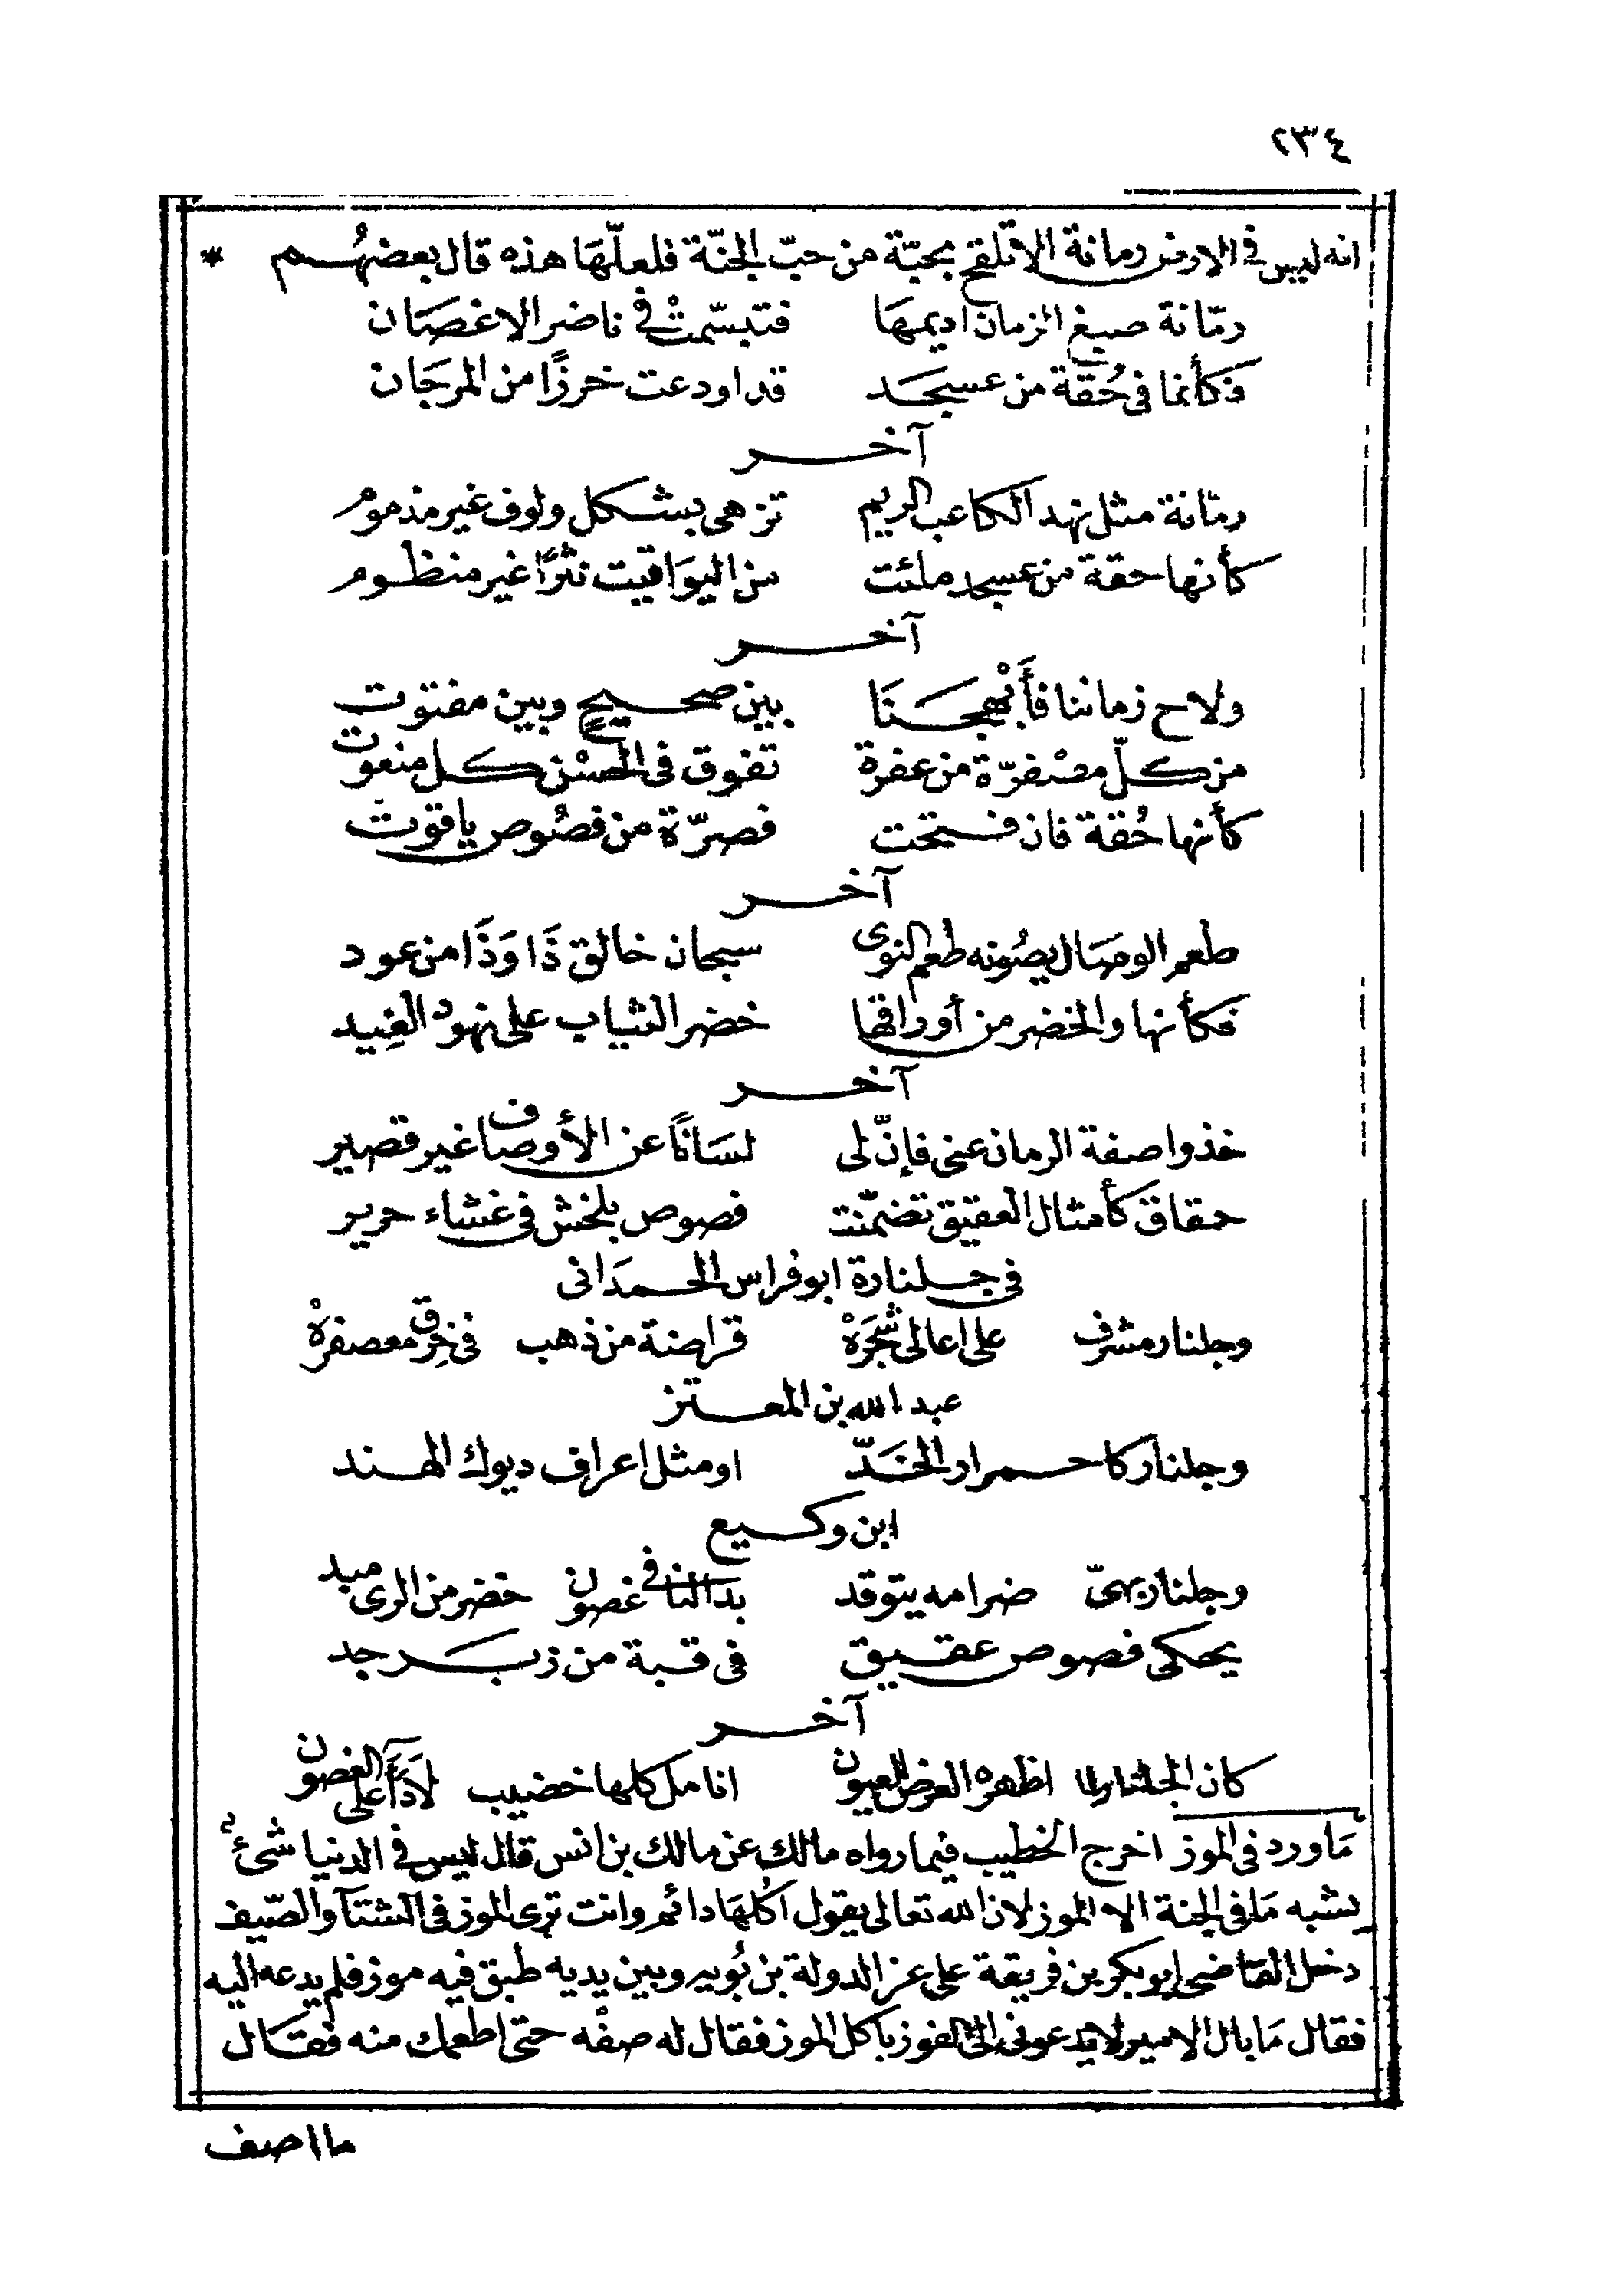 ٢٣٤
انه ليس فى الارض رمانة الا تلقح بحبّة من حبّ الجنّة فلعلّهَا هذه قال بعضهُم *
رمّانة صبغ الزمان اديمهَا فتبسّمتْ فى ناضر الاغصَان
فكأنما فى حُقّة من عسجَد قد اودعت خرزًا من المرجَان
آخر
رمّانة مثل نهد الكاعب الريم تزهى بشكل ولون غير مذموم
كأنها حقة من عسجد ملئت من اليوَاقيت نثرًا غير منظوم
آخر
ولاح زماننا فأَبْهجَنَا بين صحيحٍ وبين مفتوت
من كلّ مصْفرّة من عفرة تفوق فى الحسْن كل منعوت
كأنها حُقة فان فتحت فصرّة من فصُوص ياقوت
آخر
طعم الوصَال يصُونه طعم النوى سبحان خالق ذَا وَذَا من عود
فكأنها والخضر من أوراقها خضر الثياب على نهود الغِيد
آخر
خذوا صفة الرمان عنى فإنّ لى لسَانًا عن الأوصاف غير قصير
حقاق كأمثال العقيق تضمّنت فصوص بلخش فى غشاء حرير
فى جلنارة ابو فراس الحمدَانى
وجلنار مشرف على اعالى شَجَرَهْ قراضة من ذهب فى خِرق معصفرهْ
عبد الله بن المعتز
وجلنار كاحمرار الخَدّ او مثل اعراف ديوك الهند
ابن وكيع
وجلنار بهىّ ضرامه يتوقد بدا لنا فى غصون خضر من الرى ميد
يحكى فصوص عقيق فى قبة من زبرجد
آخر
كان الجلنار لما اظهره العرض للعيون انامل كلها خضيب على الغصون
مَاورد فى الموز اخرج الخطيب فيما رواه مالك عن مالك بن انس قال ليس فى الدنيا شئ
يشبه مَا فى الجنة الا الموز لان الله تعالى يقول اكُلهَا دائم وانت ترى الموز فى الشتآ والصّيف
دخل القاضى ابو بكر بن فريقة على عز الدولة بن بُويه وبين يديه طبق فيه موز فلم يدعه اليه
فقال مَا بال الامير لا يدعونى الى الفوز باكل الموز فقال له صفْه حتى اطعمك منه فقَال
ما اصف